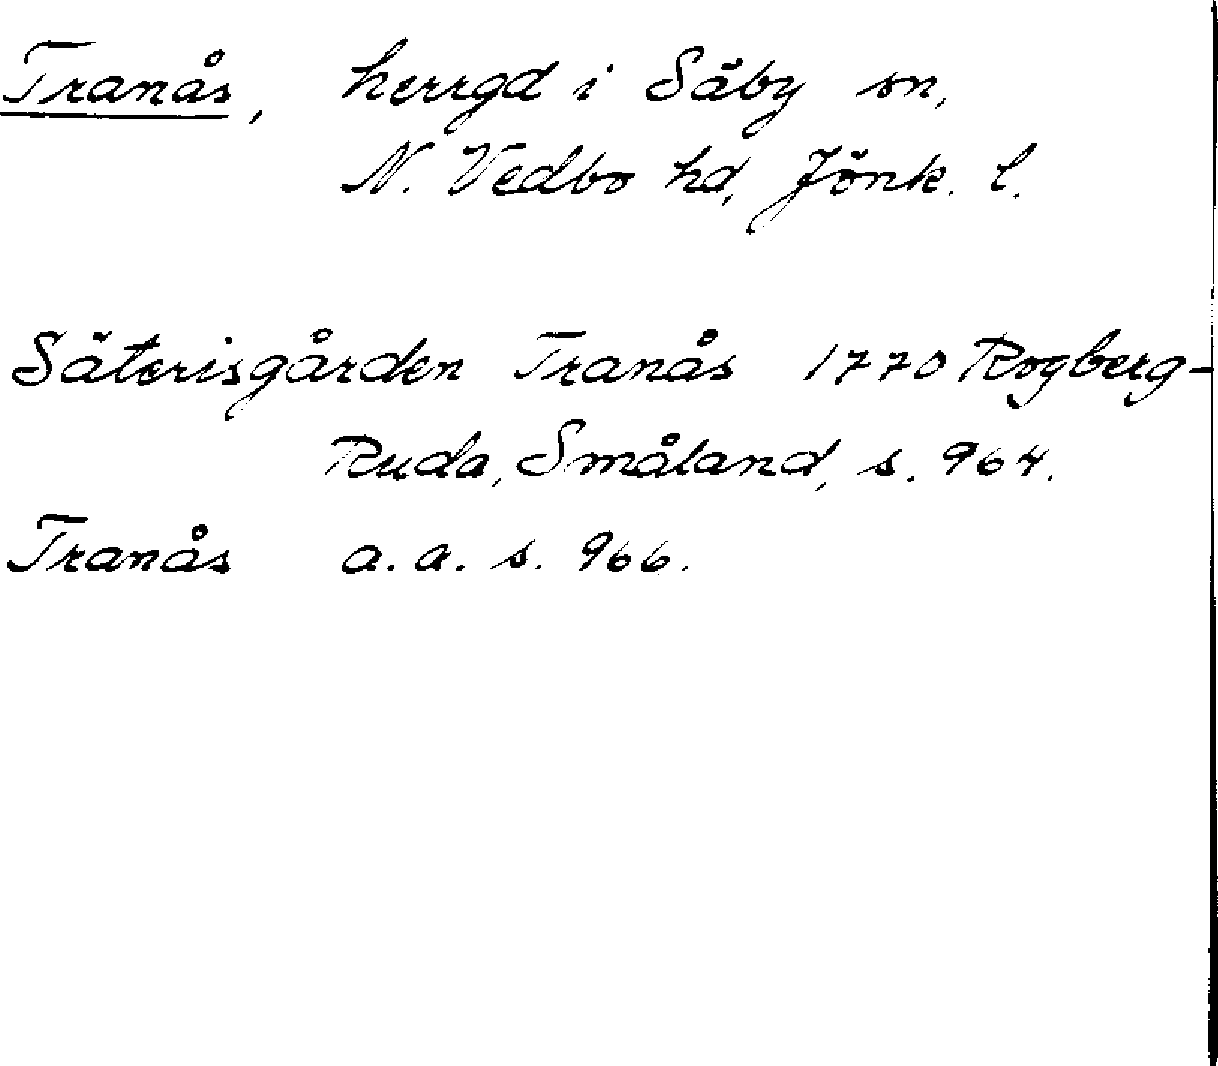 Tranås, herrgd i Säby sn,
N. Vedbo hd, Jönk. l.
Säterisgården Tranås 1770 Rogberg-
Ruda, Småland, s. 964.
Tranås a. a. s. 966.